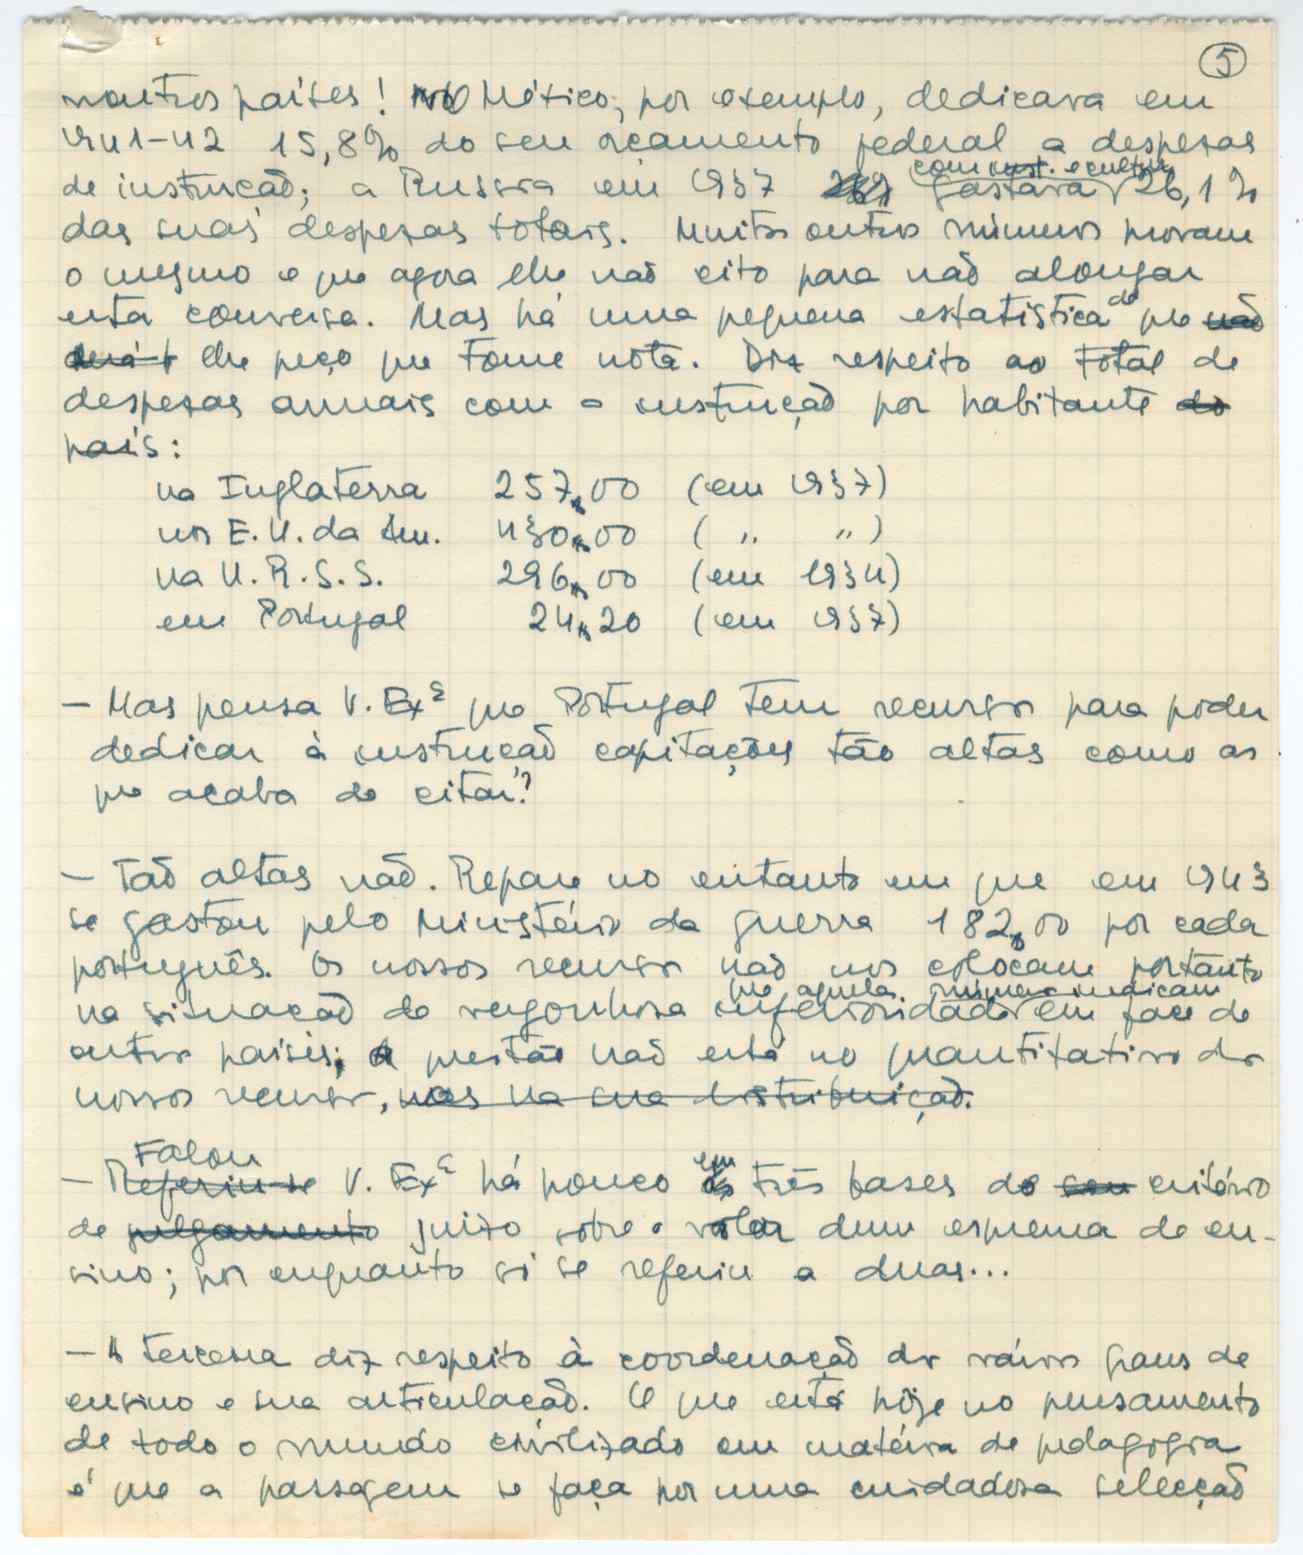 5
noutros países! No México, por exemplo, dedicava em
1941-42 15,8% do seu orçamento federal a despesas
com inst. e cultura
de instrução; a Russia em 1937 gastára 26,1%
das suas despesas totais. Muitos outros números provam
o mesmo e que agora lhe não cito para não alongar
esta conversa. Mas há uma pequena estatística de que não
lhe peço que tome nota. Diz respeito ao total de
despesas anuais com a instrução por habitante do
país:
na Inglaterra 257$00 (em 1937)
nos E.U. da Am. 430$00 ( " " )
na U.R.S.S. 296$00 (em 1934)
em Portugal 24$20 (em 1937)
— Mas pensa V. Exª que Portugal tem recursos para poder
dedicar à instrução capitações tão altas como as
que acaba de citar?
— Tão altas não. Repare no entanto em que em 1943
se gastou pelo Ministério da guerra 182$00 por cada
português. Os nossos recursos não nos colocam portanto
que aqueles números indicam
na situação de vergonhosa inferioridade em face de
outros países; a questão não está no quantitativo dos
nossos recursos, mas na sua distribuição.
Falou
em
— Referiu-se V. Exª há pouco às três bases do seu critério
de julgamento juizo sobre o valor dum esquema de en-
sino; por enquanto só se referiu a duas...
— A terceira diz respeito à coordenação dos vários graus de
ensino e sua articulação. O que está hoje no pensamento
de todo o mundo civilizado em matéria de pedagogia
é que a passagem se faça por uma cuidadosa selecção